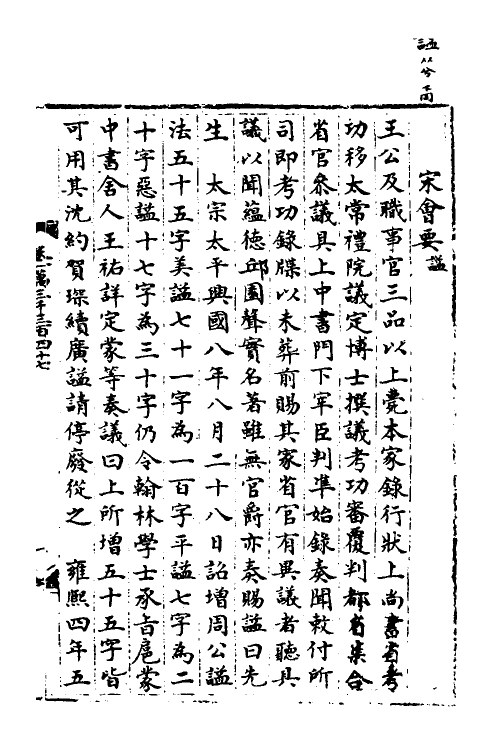 宋會要 謚
王公及職事官三品以上薨本家錄行狀上尚書省考
功移太常禮院議定博士撰議考功審覆判都省集合
省官叅議具上中書門下宰臣判準始錄奏聞敕付所
司即考功錄牒以未葬前賜其家省官有異議者聽具
議以聞蘊德邱園聲實名著雖無官爵亦奏賜謚曰先
生　太宗太平興國八年八月二十八日詔增周公謚
法五十五字美謚七十一字為一百字平謚七字為二
十字惡謚十七字為三十字仍令翰林學士承旨扈蒙
中書舍人王祐詳定蒙等奏議曰上所增五十五字皆
可用其沈約賀琛續廣謚請停廢從之　雍熙四年五
卷一萬三千三百四十七